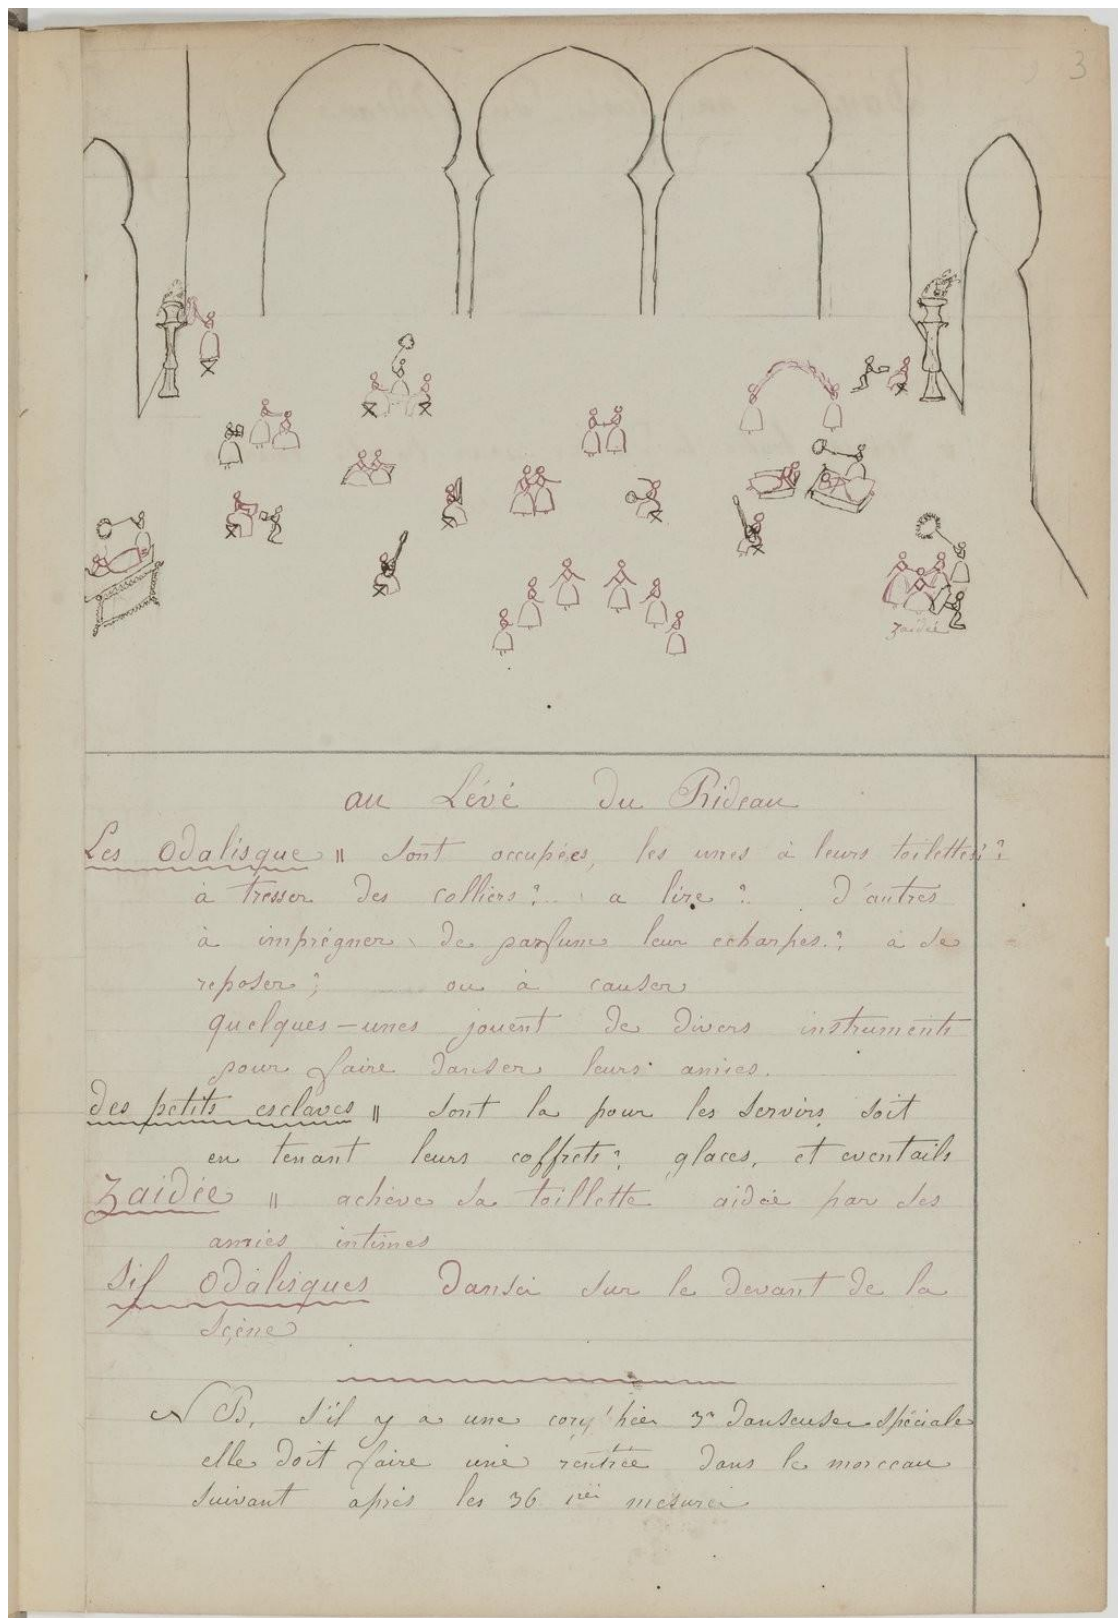 3
Zaidée
au Lévé du Rideau
Les Odalisque " sont occupées, les unes à leurs toilettes; ?
à tresser des colliers ? .. a lire ? . d'autres
à imprégner de parfum leur echarpes. ? à se
reposer ; ou à causer
quelques-unes jouent de divers instruments
pour faire danser leurs amies.
des petits esclaves " sont la pour les servirs, soit
en tenant leurs coffrets ? glaces, et eventails
Zaidée " achève sa toillette aidée par ses
amies intimes
Six Odalisques danse sur le devant de la
Scène
NB, s'il y a une cory'hée danseuse spéciale
elle doit faire une rentrée dans le morceau
suivant après les 36 1res mesures